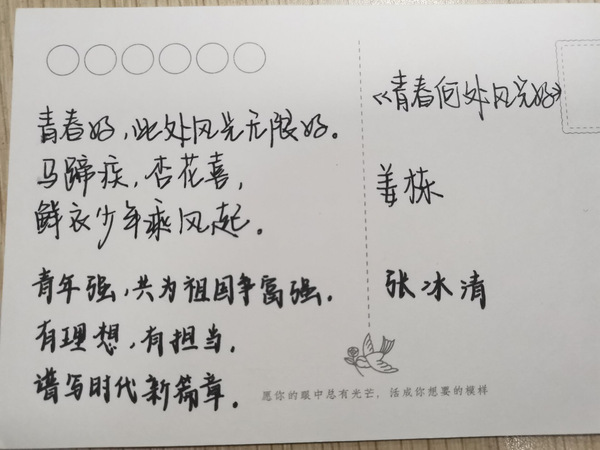 青春好，此处风光无限好。
马蹄疾，杏花喜，
鲜衣少年乘风起。
青年强，共为祖国争富强。
有理想，有担当，
谱写时代新篇章。
《青春何处风光好》
姜栋
张冰清
愿你的眼中总有光芒，活成你想要的模样